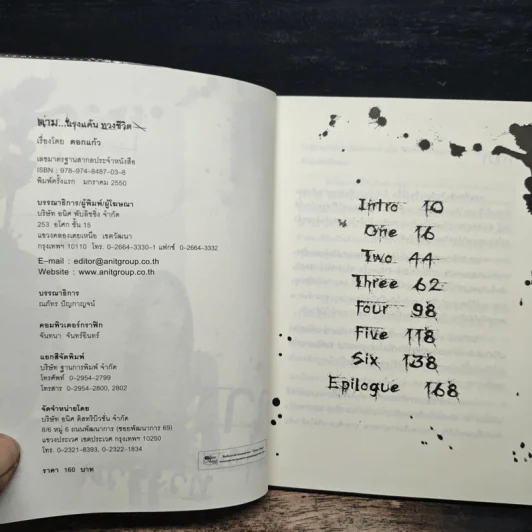 ตาม...แรงแค้น ทวงชีวิต
เรื่องโดย ดอกแก้ว
เลขมาตรฐานสากลประจำหนังสือ
ISBN : 978-974-8487-03-8
พิมพ์ครั้งแรก มกราคม 2550
บรรณาธิการ/ผู้พิมพ์/ผู้โฆษณา
บริษัท อนิศ พับลิชชิง จำกัด
253 อโศก ชั้น 15
แขวงคลองเตยเหนือ เขตวัฒนา
กรุงเทพฯ 10110 โทร. 0-2664-3330-1 แฟกซ์ 0-2664-3332
E-mail : editor@anitgroup.co.th
Website : www.anitgroup.co.th
บรรณาธิการ
ณภัทร ปัญกาญจน์
คอมพิวเตอร์กราฟิก
จันทนา จันทร์อินทร์
แยกสีจัดพิมพ์
บริษัท ฐานการพิมพ์ จำกัด
โทรศัพท์ 0-2954-2799
โทรสาร 0-2954-2800, 2802
จัดจำหน่ายโดย
บริษัท อนิศ ดิสทริบิวชั่น จำกัด
8/6 หมู่ 6 ถนนพัฒนาการ (ซอยพัฒนาการ 69)
แขวงประเวศ เขตประเวศ กรุงเทพฯ 10250
โทร. 0-2321-8393, 0-2322-1834
ราคา 160 บาท
Intro 10
One 16
Two 44
Three 62
Four 98
Five 118
Six 138
Epilogue 168